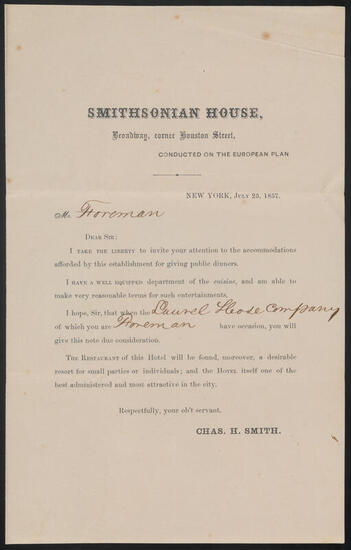 SMITHSONIAN HOUSE,
Broadway, corner Houston Street,
CONDUCTED ON THE EUROPEAN PLAN
NEW YORK, July 25, 1857.
Mr Foreman
Dear Sir:
I take the liberty to invite your attention to the accommodations
afforded by this establishment for giving public dinners.
I have a well equipped department of the cuisine, and am able to
make very reasonable terms for such entertainments.
I hope, Sir, that when the Laurel Hose Company
of which you are Foreman have occasion, you will
give this note due consideration.
The Restaurant of this Hotel will be found, moreover, a desirable
resort for small parties or individuals; and the Hotel itself one of the
best administered and most attractive in the city.
Respectfully, your ob't servant.
CHAS. H. SMITH.